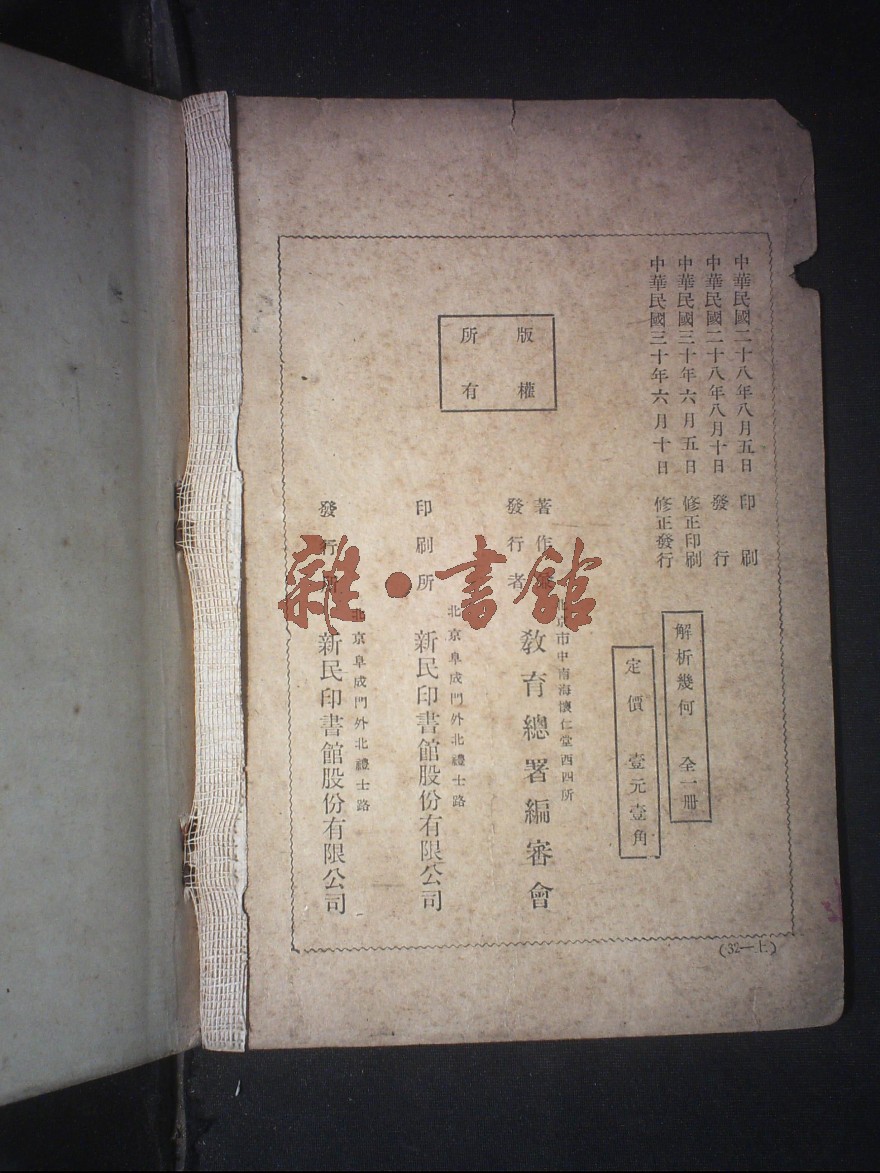 中華民國二十八年八月五日 印刷
中華民國二十八年八月十日 發行
中華民國三十年六月五日 修正印刷
中華民國三十年六月十日 修正發行
解析幾何 全一冊
定價 壹元壹角
版權
所有
著作兼
發行者
北京市中南海懷仁堂西四所
教育總署編審會
印刷所
北京阜成門外北禮士路
新民印書館股份有限公司
發行所
北京阜成門外北禮士路
新民印書館股份有限公司
(32—上)
雜·書館